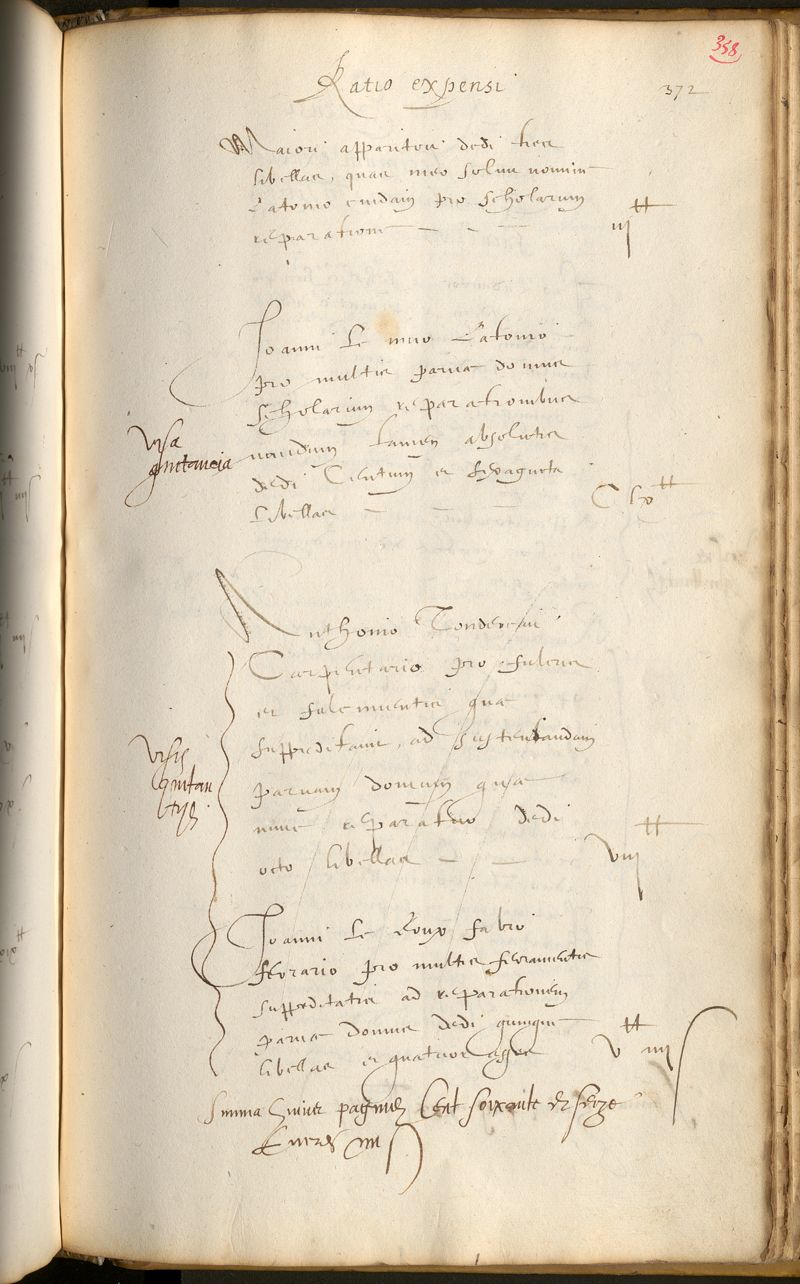 358
Ratio expensi
372
Maiori apparitori dedi tres
libellas, quas meo soluit nomine
Latomo cuidam pro scholarum
reparatione
iij ₶
Joanni le Latomo
pro multis parvæ domus
scholarium reparationibus
visa
quitancia
nondum tamen absolutis
dedi Centum et sexaginta
libellas
C lx ₶
Anthonio
Carpentario pro fulcris
et fulcimentis quæ
suppeditavit, ad sustentandam
visis
quitan
tijs
parvam domum quæ
nunc reparatur dedi
octo libellas
viij ₶
Joanni le Roux fabro
ferrario pro multis ferramentis
suppeditatis ad reparationem
parvæ domus dedi quinque
libellas et quatuor asses
v ₶ iiij s
Summa huius paginæ Cent soixante et seize
Livres iiij s